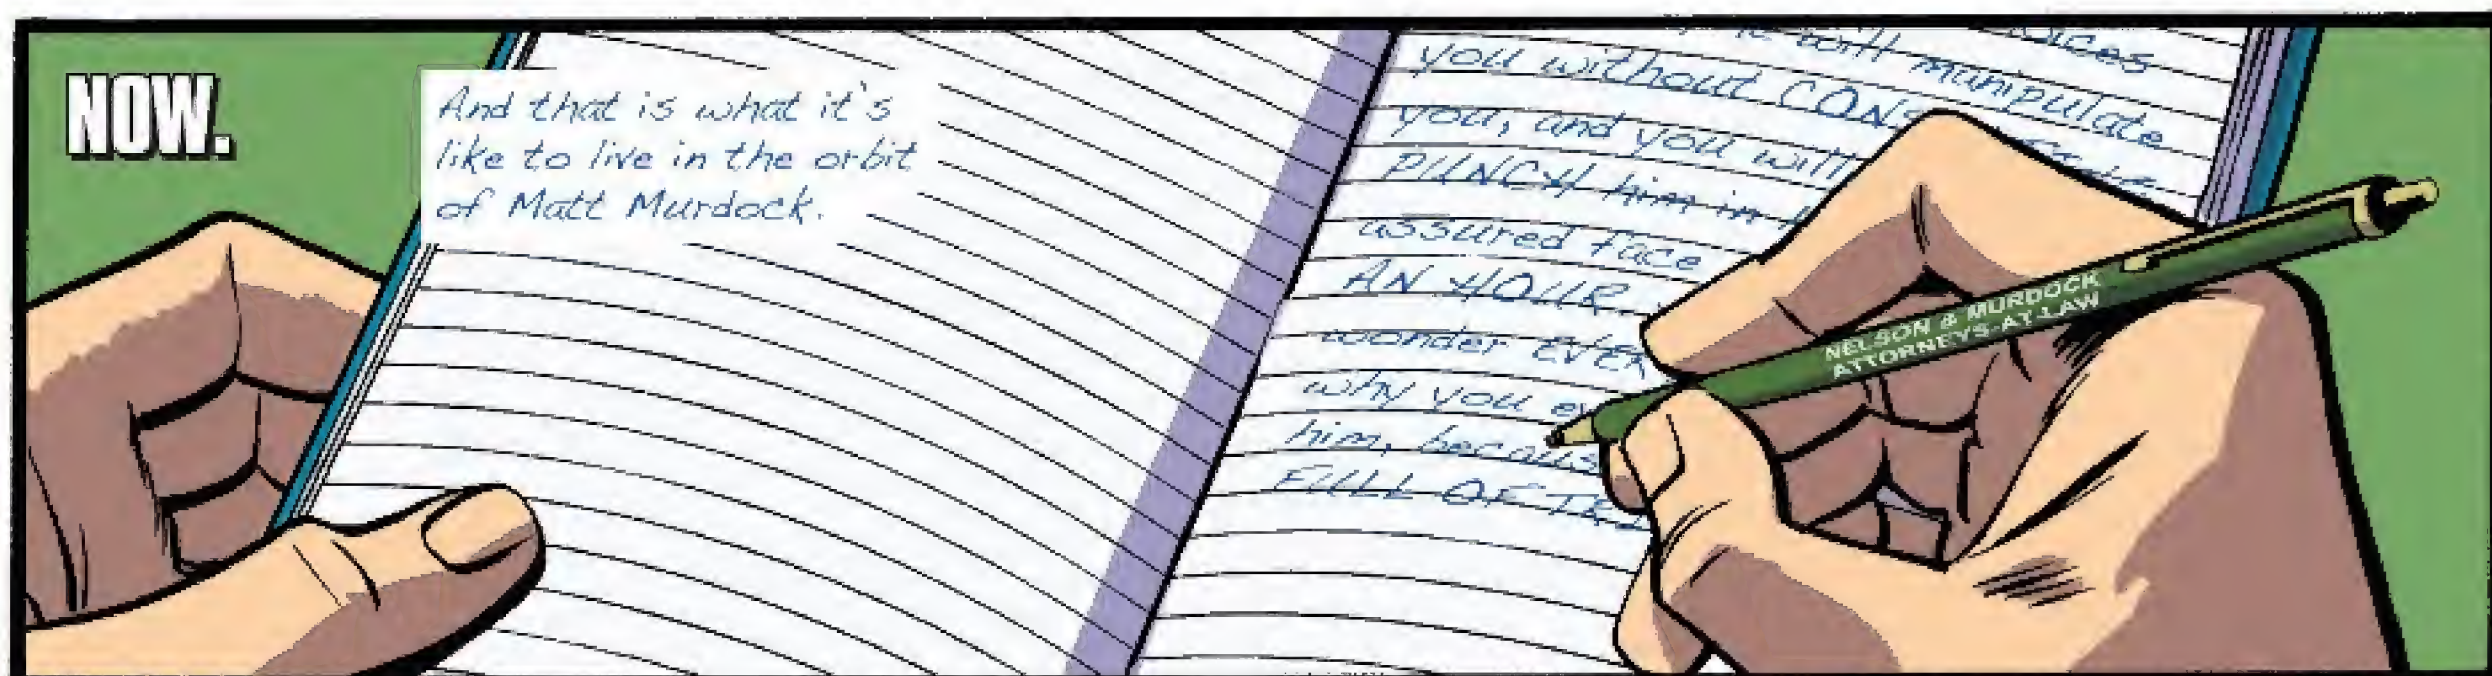 NOW.
And that is what it's
like to live in the orbit
of Matt Murdock.
will manipulate
you without
you, and you will
PUNCH him in
assured face
AN HOUR.
wonder
why you
him,
FULL OF
NELSON & MURDOCK
ATTORNEYS-AT-LAW